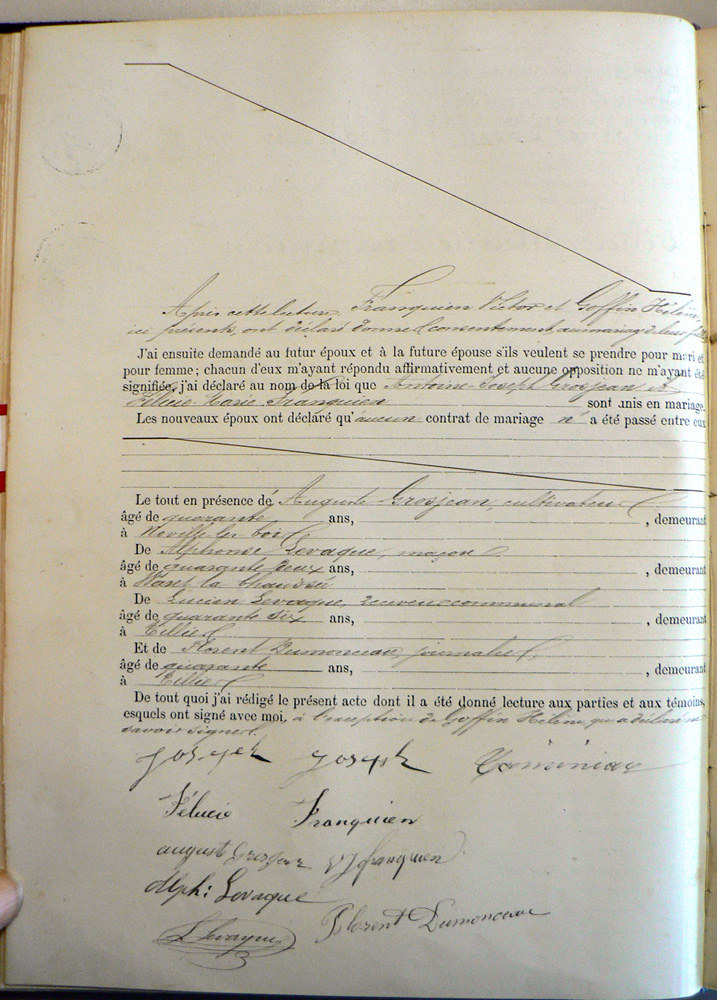 Après cette lecture, Franquien Victor et Goffin Hélène,
ici présents, ont déclaré donner consentement au mariage de leur fille
J'ai ensuite demandé au futur époux et à la future épouse s'ils veulent se prendre pour mari et
pour femme ; chacun d'eux m'ayant répondu affirmativement et aucune opposition ne m'ayant été
signifiée, j'ai déclaré au nom de la loi que Antoine Joseph Grosjean et
Félicie Marie Franquien sont unis en mariage.
Les nouveaux époux ont déclaré qu'aucun contrat de mariage n' a été passé entre eux
Le tout en présence de Auguste Grosjean, cultivateur
âgé de quarante ans, , demeurant
à Noville les bois
De Alphonse Levaque, maçon
âgé de quarante deux ans, , demeurant
à Waret la Chaussée
De Lucien Levaque, receveur communal
âgé de quarante six ans, , demeurant
à Tillier
Et de Florent Dumonceau, journalier
âgé de quarante ans, , demeurant
à Tillier
De tout quoi j'ai rédigé le présent acte dont il a été donné lecture aux parties et aux témoins,
esquels ont signé avec moi, à l'exception de Goffin Hélène, qui a déclaré ne
savoir signer.
Joseph Joseph
Félicie Franquien
august Grosjean V J franquien
alph: Levaque
L Levaque Florent Dumonceau